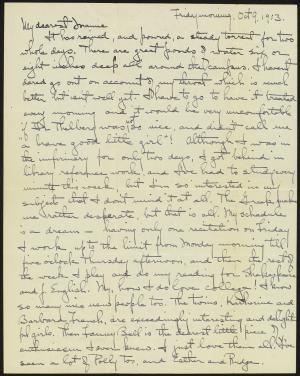 Friday morning, Oct 9, 1913.
My dearest
It has rained, and poured, a steady torrent for two
whole days. There are great ponds of water six or
eight inches deep all around the campus. I haven't
dared go out on account of my throat which is much
better but isn't well yet. I have to go to have it treated
every morning and it would be very uncomfortable
if Dr. Thelberg wasn't so nice, and didn't call me
a "brave good little girl"! Although I was in
the infirmary for only two days, I got behind in
library reference work and I've had to study every
minute this week, but I'm so interested in my
subjects that I don't mind it at all. The Greek makes
me rather desperate, but that is all. My schedule
is a dream - having only one recitation on Friday
I work up to the limit from Monday morning till
five o'clock Thursday afternoon, and then the rest of
the week I play and do my reading for Shakespeare
and J English. My, how I do love college! I know
so many nice new people too. The twins, Katharine and
Barbara French, are exceedingly interesting and delight-
ful girls. Then Fanny Bell is the dearest little piece of
enthusiasm I ever knew. I just love them all. I've
seen a lot of Polly too, and Esther and